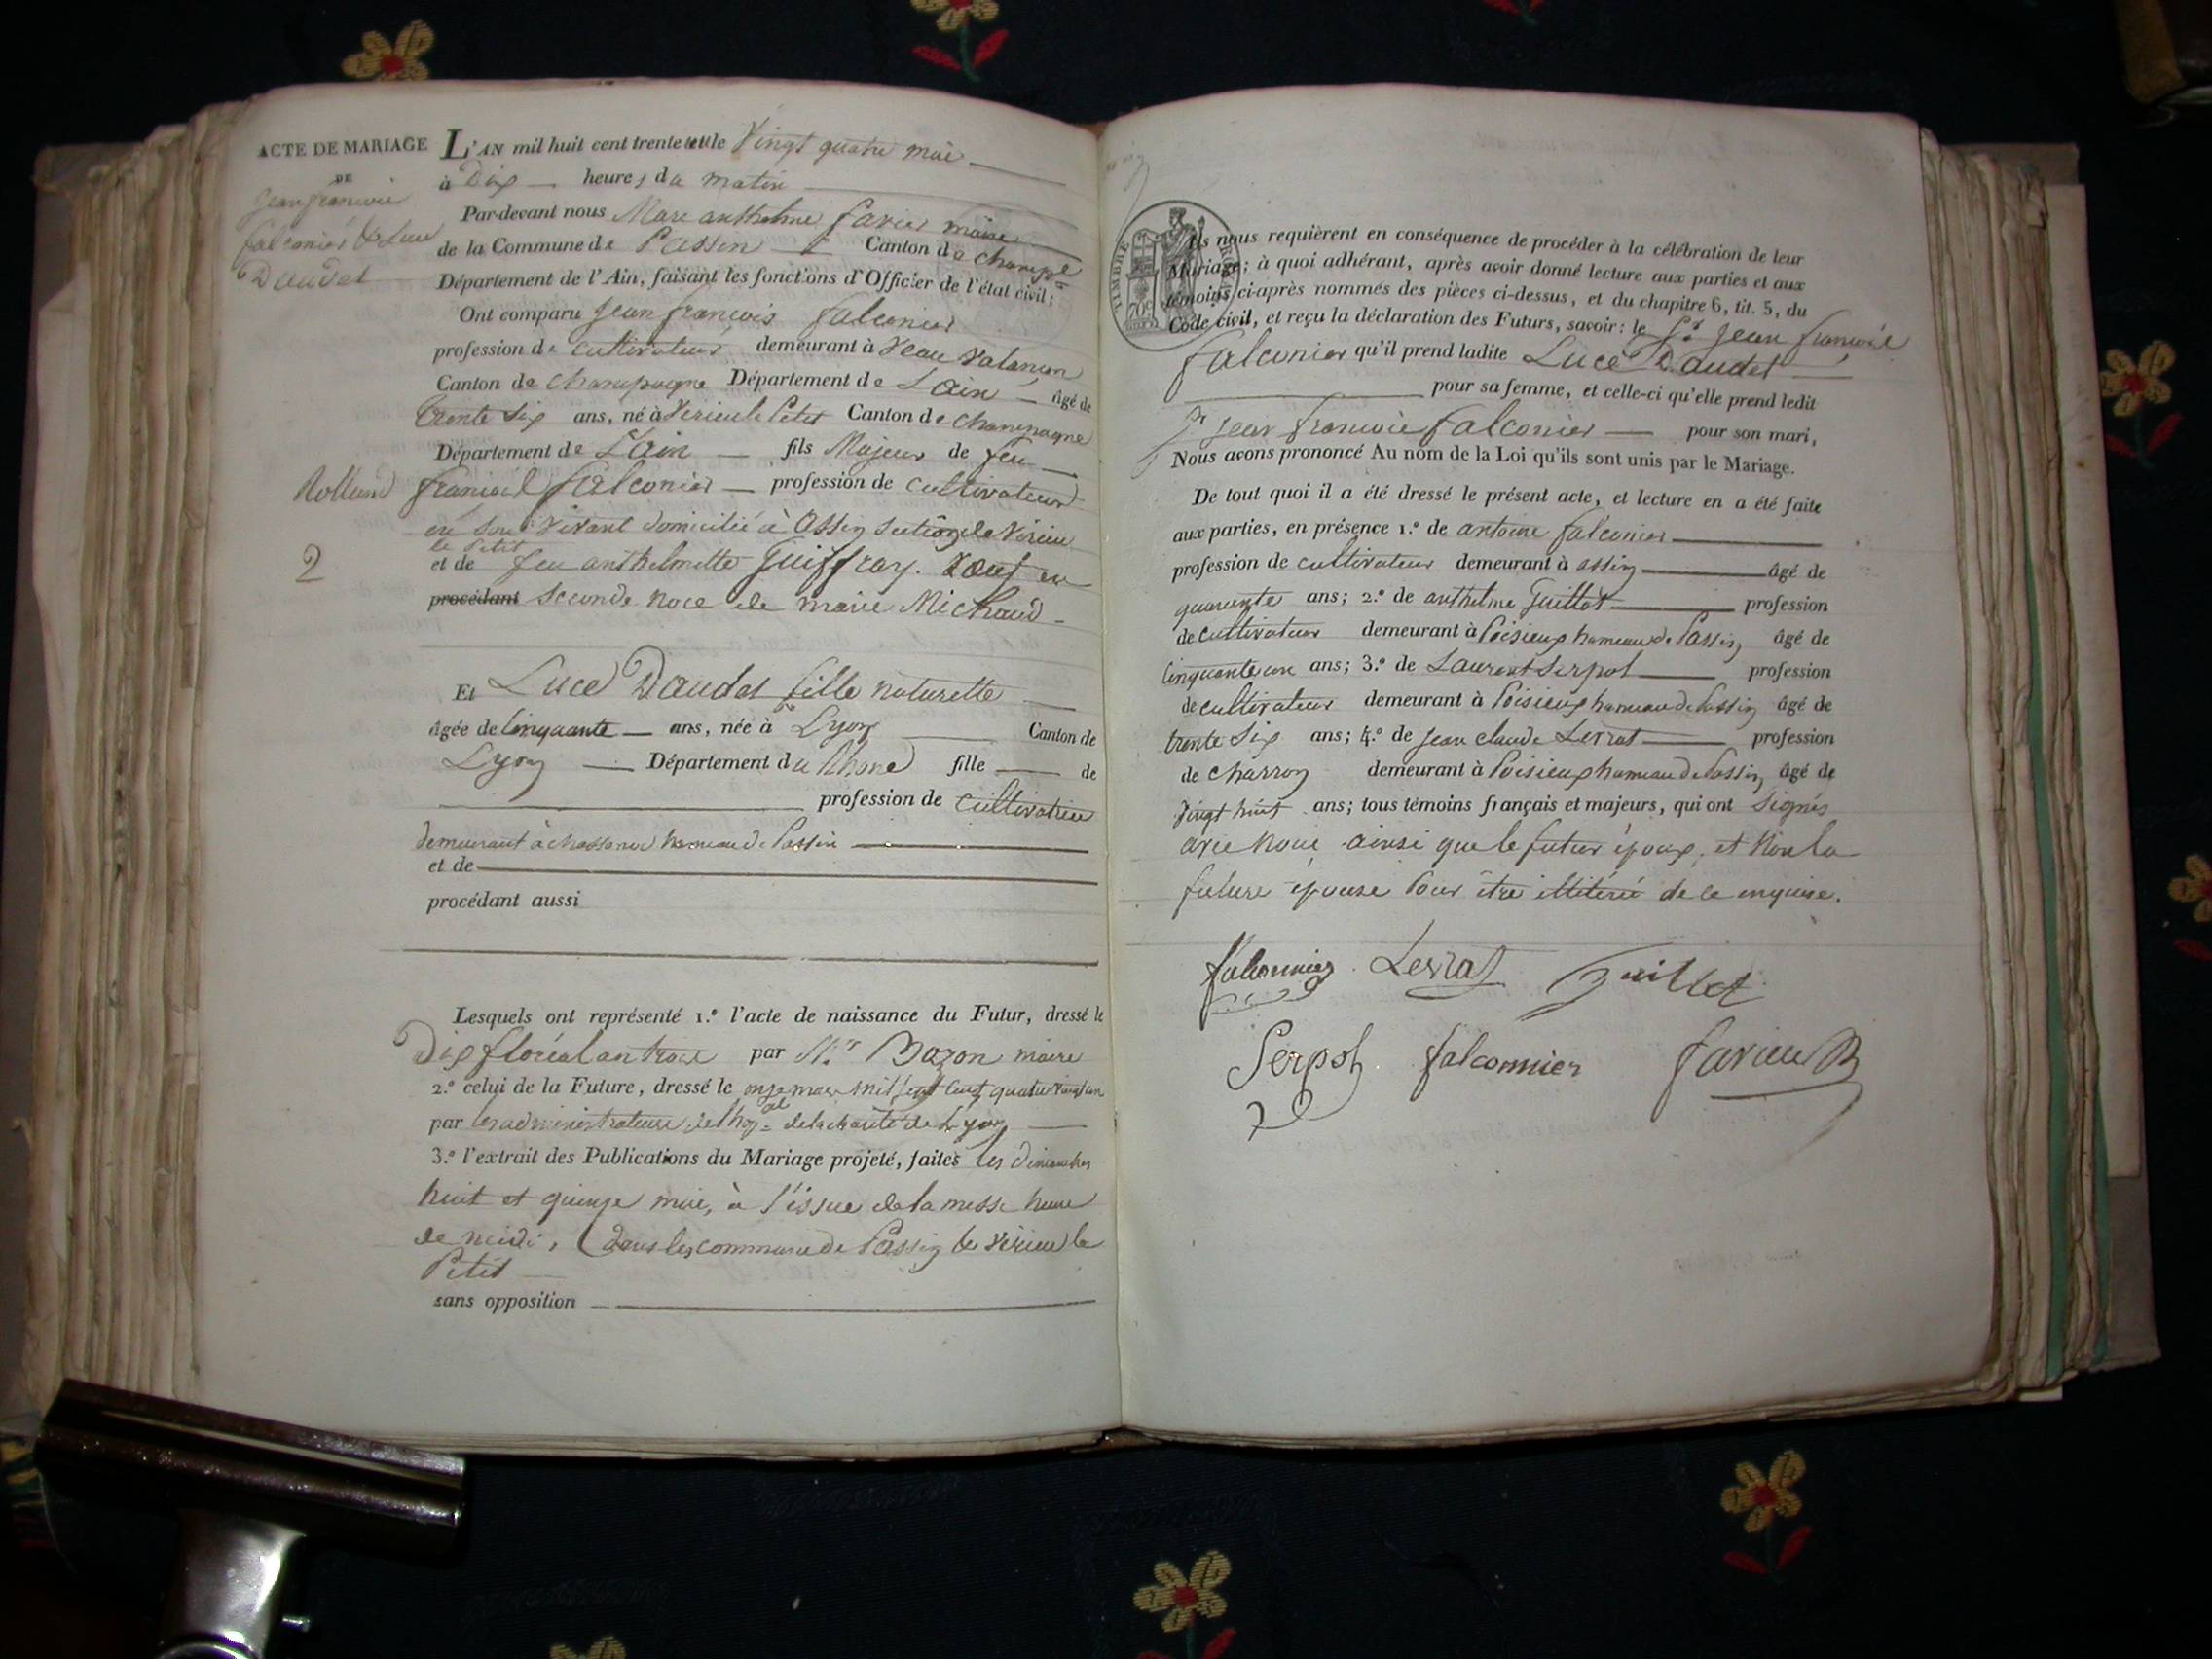 ACTE DE MARIAGE
DE
jean françois
falconier & Luce
Daudet
L'AN mil huit cent trente et un le Vingt quatre mai
à Dix heures du matin
Par-devant nous Marc anthelme favier maire
de la Commune de Passin Canton de champe
Département de l'Ain, faisant les fonctions d'Officier de l'état civil;
Ont comparu jean françois falconier
profession de cultivateur demeurant à
Canton de champagne Département de L'ain âgé de
trente six ans, né à Virieu le Petit Canton de champagne
Département de L'ain fils Majeur de feu
Rolland françois falconier profession de cultivateur
en son vivant domicilié à Assin section de Virieu
le Petit
2
et de feu anthelmette Guiffray. Veuf en
procédant seconde noce de marie Michaud
Et Luce Daudet fille naturelle
âgée de Cinquante ans, née à Lyon Canton de
Lyon Département du Rhone fille de
profession de cultivatrice
demeurant à hameau de Passin
et de
procédant aussi
Lesquels ont représenté 1.º l'acte de naissance du Futur, dressé le
Dix floréal an trois par Mr Bozon maire
2.º celui de la Future, dressé le onze mars mil sept cent quatre vingt un
par les administrateurs de l'hopal de la charité de Lyon
3.º l'extrait des Publications du Mariage projeté, faites les dimanches
huit et quinze mai, à l'issue de la messe heure
de midi, dans les commune de Passin & Virieu le
Petit
sans opposition
TIMBRE ROYAL
70c
Ils nous requièrent en conséquence de procéder à la célébration de leur
Mariage; à quoi adhérant, après avoir donné lecture aux parties et aux
témoins ci-après nommés des pièces ci-dessus, et du chapitre 6, tit. 5, du
Code civil, et reçu la déclaration des Futurs, savoir: le Sr jean françois
falconier qu'il prend ladite Luce Daudet
pour sa femme, et celle-ci qu'elle prend ledit
Sr jean françois falconier pour son mari,
Nous avons prononcé Au nom de la Loi qu'ils sont unis par le Mariage.
De tout quoi il a été dressé le présent acte, et lecture en a été faite
aux parties, en présence 1.º de antoine falconier
profession de cultivateur demeurant à assin âgé de
quarante ans; 2.º de anthelme Guillot profession
de cultivateur demeurant à Poisieux hameau de Passin âgé de
Cinquante un ans; 3.º de Laurent Serpol profession
de cultivateur demeurant à Poisieux hameau de Passin âgé de
trente six ans; 4.º de jean claude Lerrat profession
de charron demeurant à Poisieux hameau de Passin âgé de
Vingt huit ans; tous témoins français et majeurs, qui ont signés
avec nous ainsi que le futur époux, et Non la
future épouse Pour être illitéré de ce enquise.
falconnier Lerrat Guillot
Serpol falconnier favier